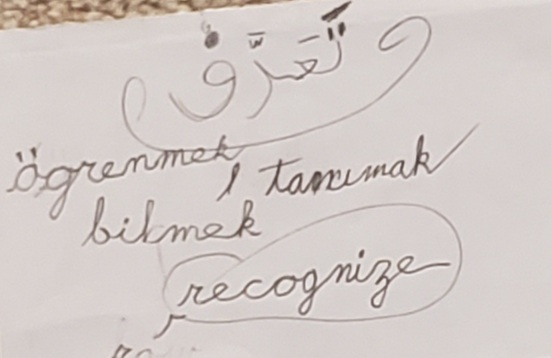 تَعَرَّفْ
öğrenmek, tanımak
bilmek
recognize